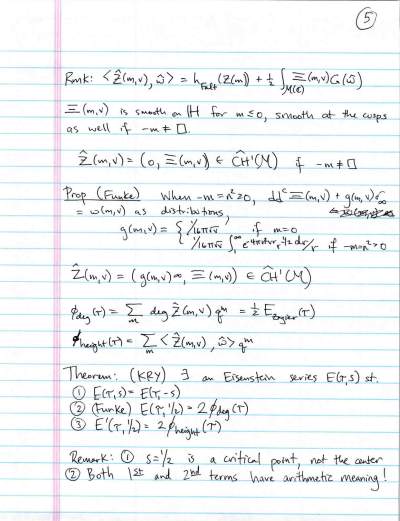 ⑤
Rmk: < Ẑ(m,v), ω̂ > = h_Falt(Z(m)) + 1/2 ∫_M(C) Ξ(m,v) C₁(ω̂)
Ξ(m,v) is smooth on ℍ for m ≤ 0, smooth at the cusps
as well if -m ≠ □.
Ẑ(m,v) = (0, Ξ(m,v)) ∈ ĈH¹(M) if -m ≠ □
Prop (Funke) When -m = n² ≥ 0, dd^c Ξ(m,v) + g(m,v) δ_∞
= ω(m,v) as distributions,
g(m,v) = { 1/16π√v if m=0
1/16π√v ∫₁^∞ e^{-4πn²vr} r^{-3/2} dr if -m=n²>0
Ẑ(m,v) = (g(m,v)∞, Ξ(m,v)) ∈ ĈH¹(M)
ϕ_deg(τ) = Σ_m deg Ẑ(m,v) q^m = 1/2 E_Zagier(τ)
ϕ_height(τ) = Σ_m < Ẑ(m,v), ω̂ > q^m
Theorem: (KRY) ∃ an Eisenstein series E(τ,s) st.
① E(τ,s) = E(τ,-s)
② (Funke) E(τ,1/2) = 2ϕ_deg(τ)
③ E'(τ,1/2) = 2ϕ_height(τ)
Remark: ① s=1/2 is a critical point, not the center
② Both 1st and 2nd terms have arithmetic meaning!